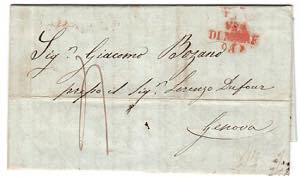 Sig.r Giacomo Bozano
presso il Sig.r Lorenzo Dufour
Genova